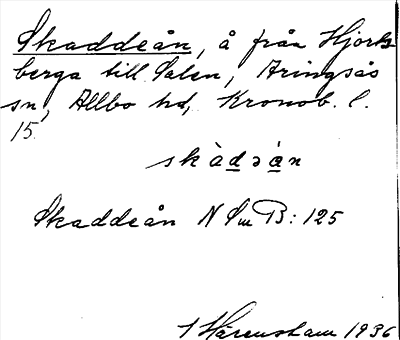 Skaddeån, å från Hjorts-
berga till Salen, Aringsås
sn, Allbo hd, Kronob. l.
15.
skàdəàn
Skaddeån N Sm B: 125
1936